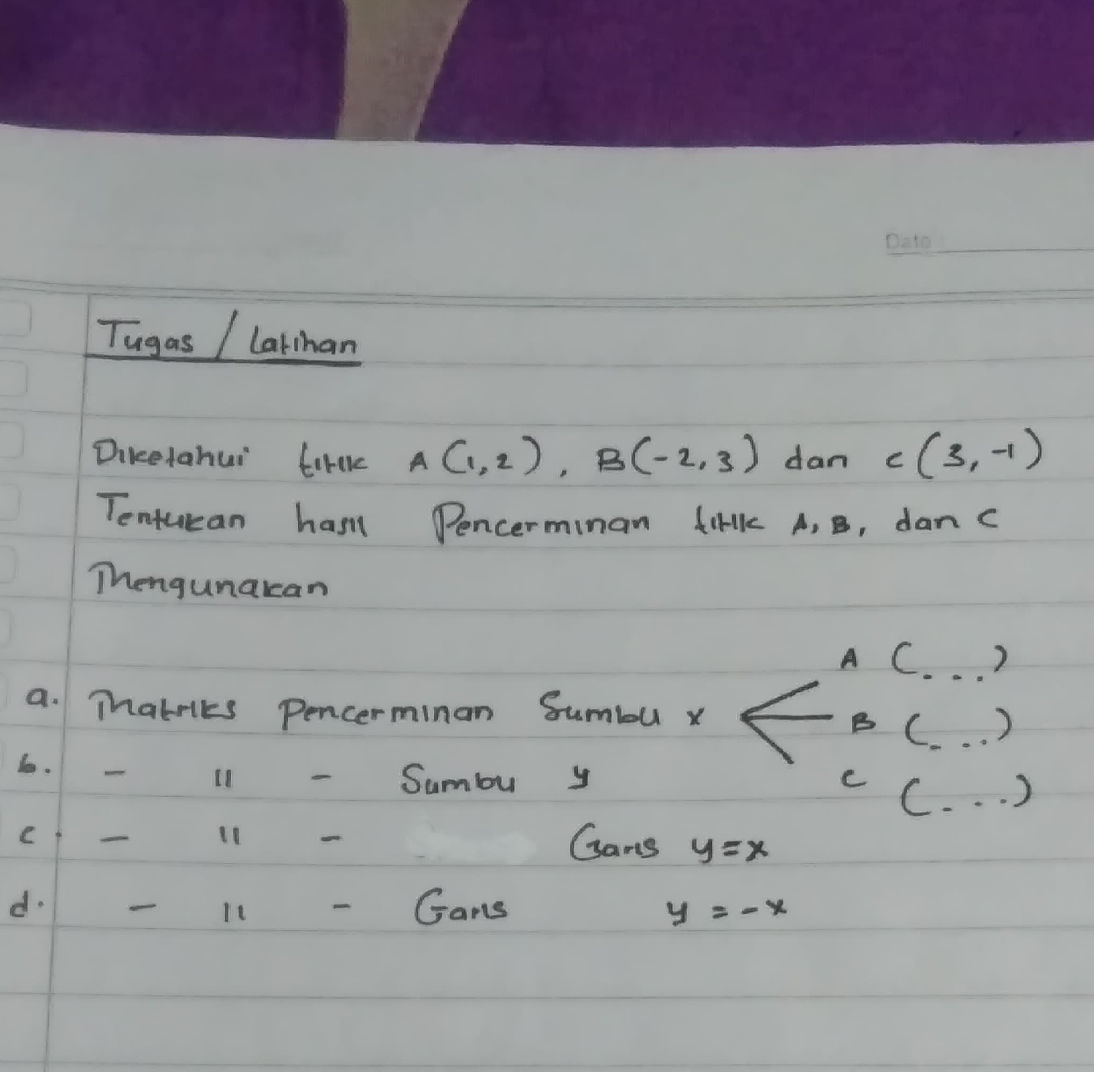 Date
Tugas / Latihan
Diketahui titik A (1,2), B(-2,3) dan c (3,-1)
Tentukan hasil Pencerminan titik A, B, dan C
Mengunakan
a. Matriks Pencerminan Sumbu x A (...)
B (....)
b. - 11 - Sumbu y
C (....)
c - 11 - Garis y=x
d. - 11 - Garis y = -x